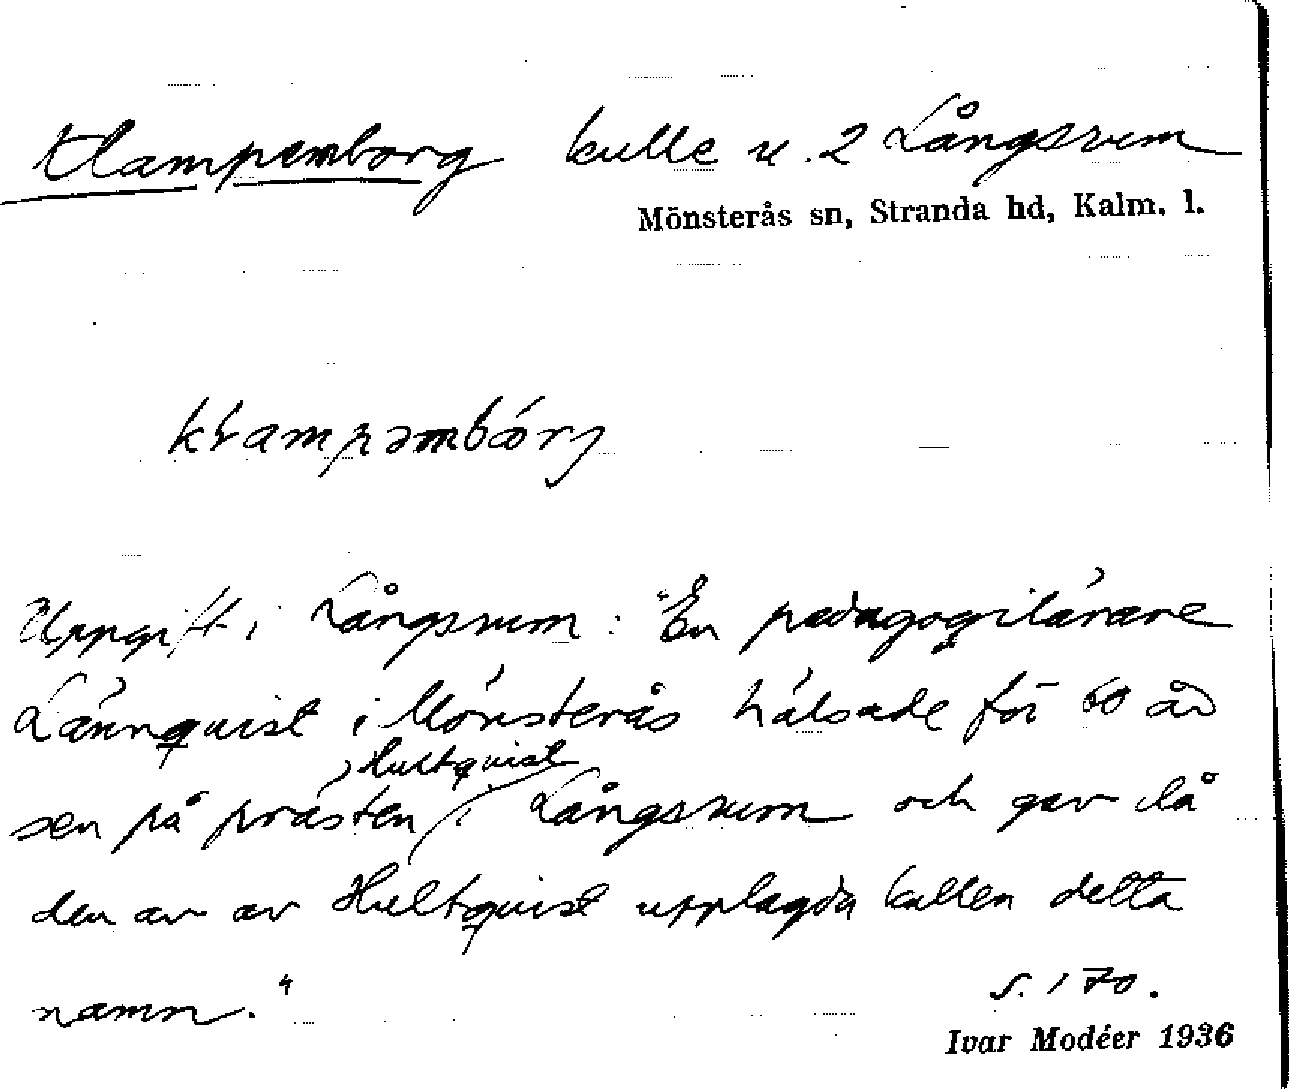 Klampemborg kulle u. 2 Långsrum
Mönsterås sn, Stranda hd, Kalm. l.
klampəmbórj
Uppgift i Långsrum: "En pedagogilärare
Lännquist i Mönsterås hälsade för 60 år
Hultquist
sen på prästen i Långsrum och gav då
den av av Hultquist upplagda kullen detta
namn."
S. 170.
Ivar Modéer 1936